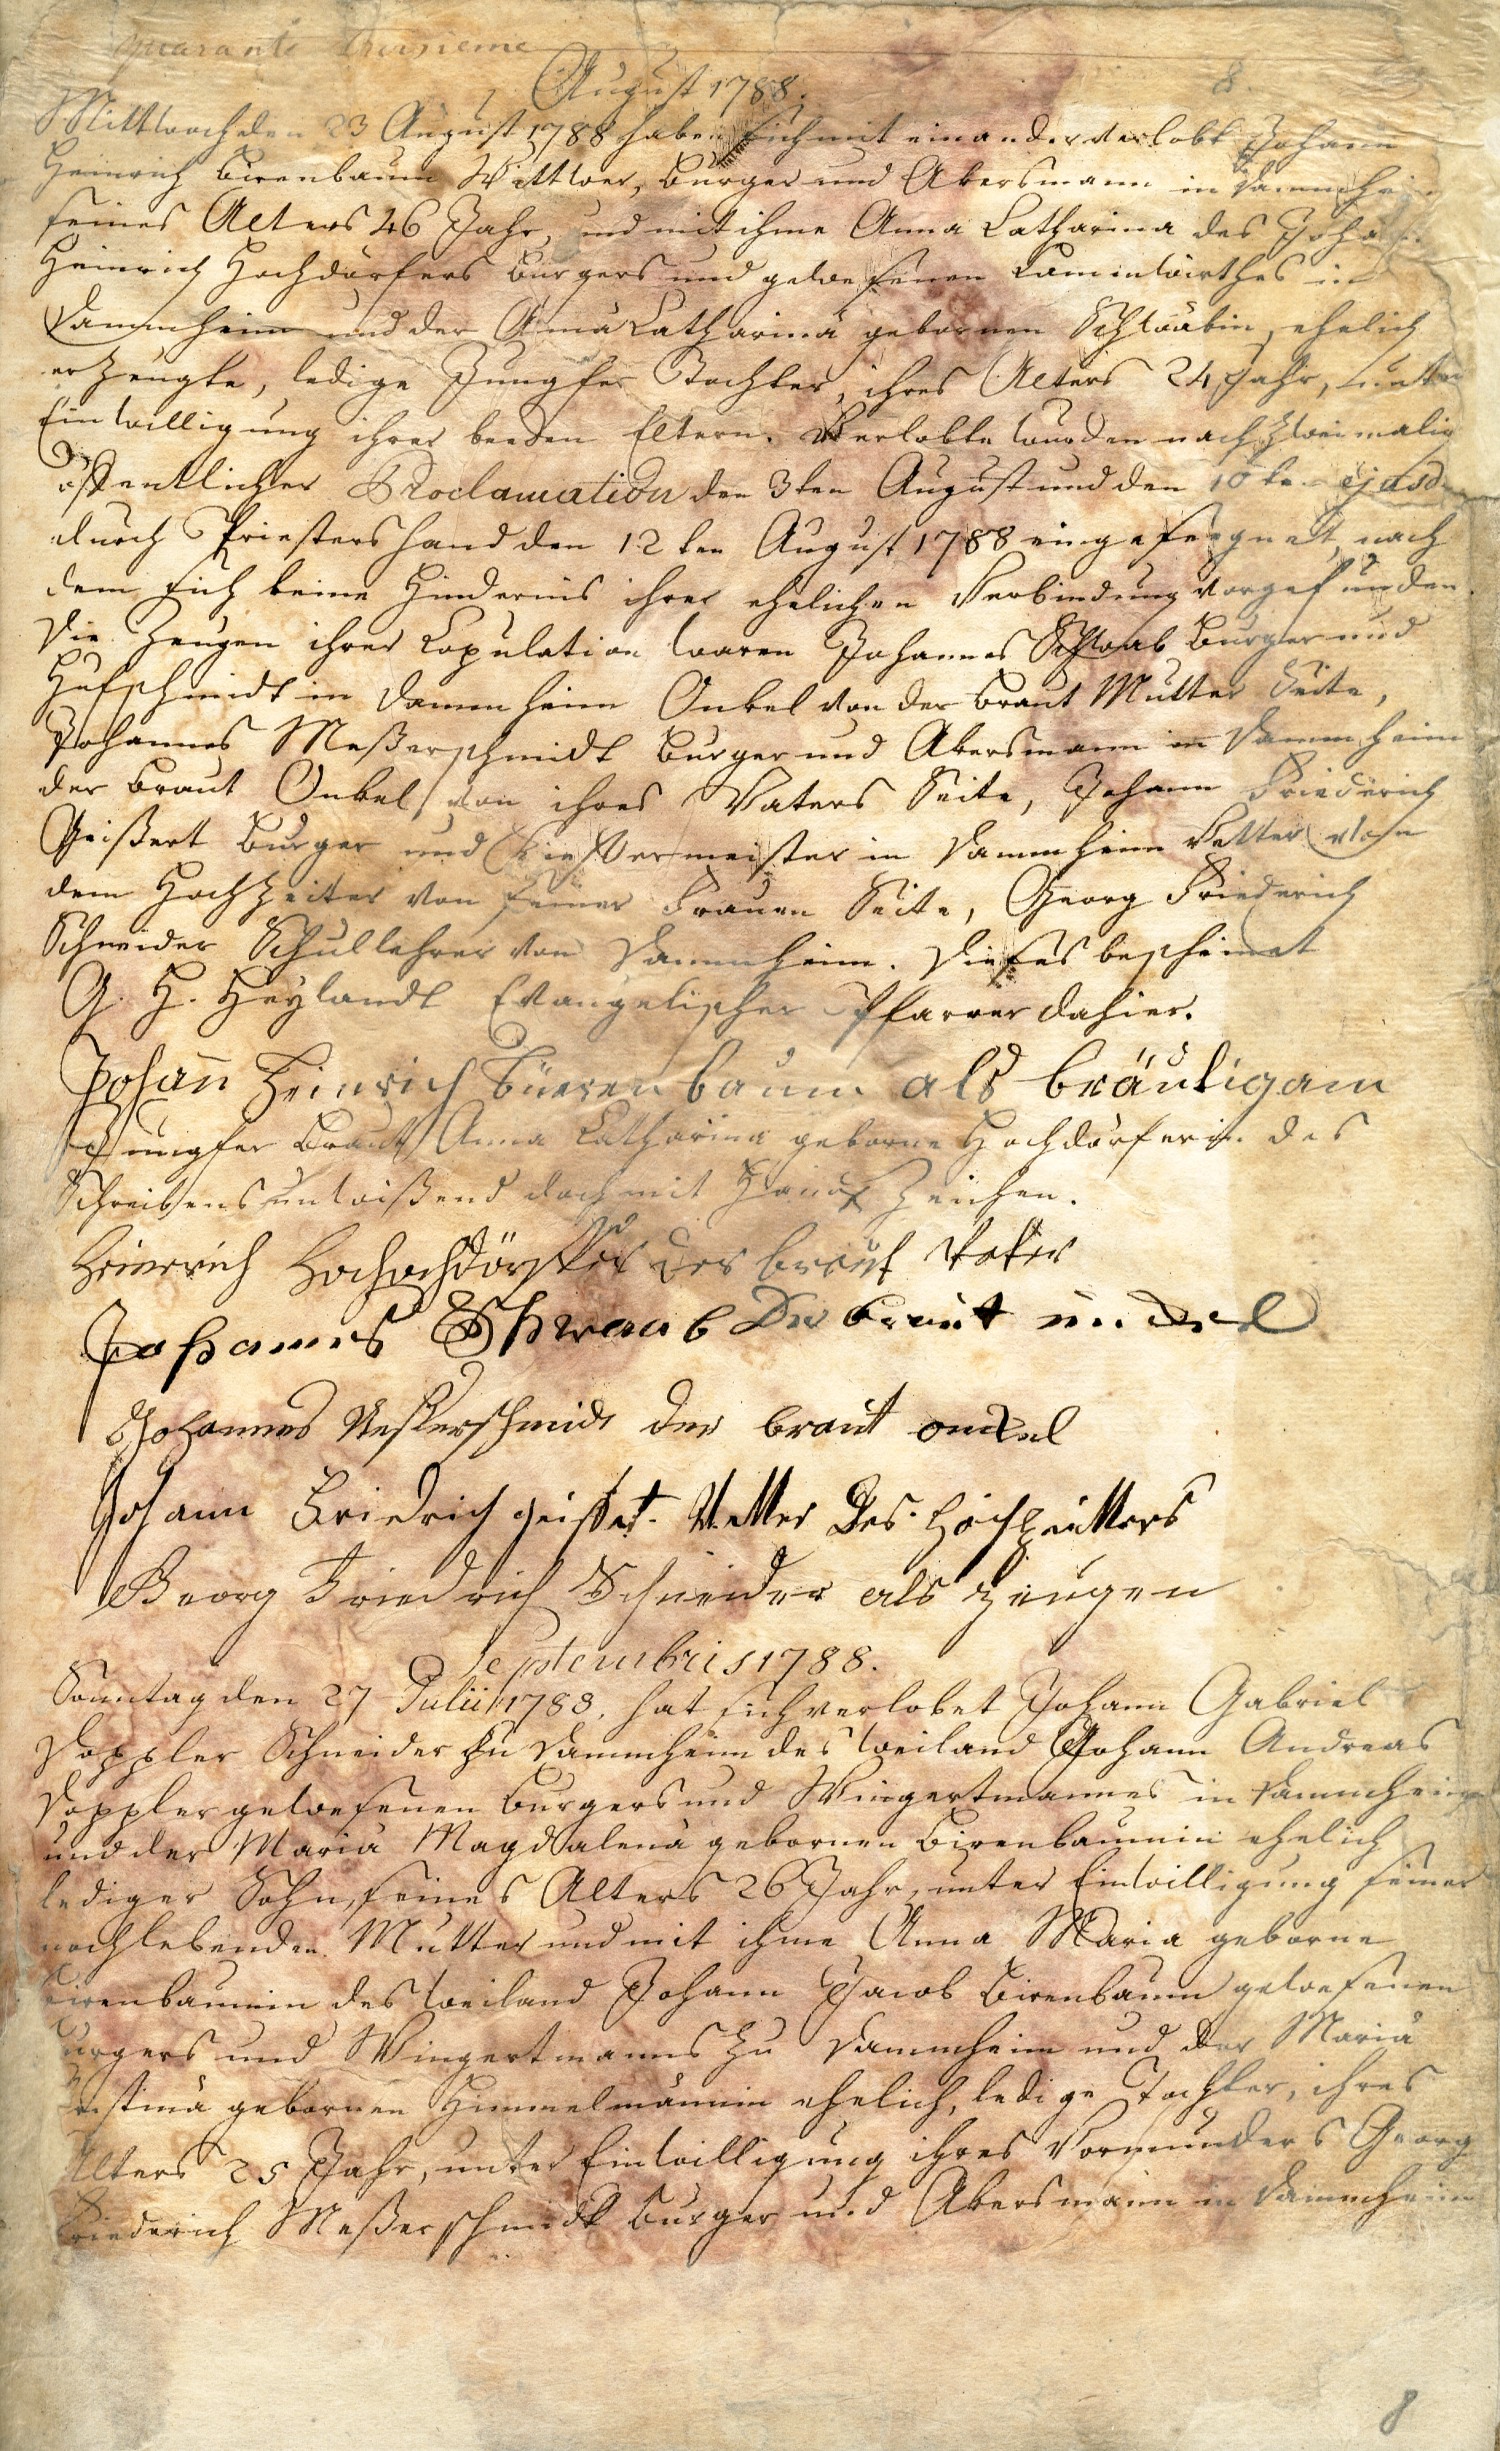 quarante troisieme
August 1788.
8.
Mittwoch den 23 August 1788 haben sich mit einander verlobt Johann
Heinrich Birenbaum Wittwer, Burger und Akersmann in Dammheim
seines Alters 46 Jahr, und mit ihme Anna Catharina des Johann
Heinrich Hochdörfers Burgers und gewesenen Laminwirthes in
Dammheim und der Anna Catharina gebornen Schwäbin, ehelich
erzeugte, ledige Jungfer Tochter, ihres Alters 24 Jahr, unter
Einwilligung ihrer beeden Eltern. Verlobte wurden nach zweimalig
öffentlicher Proclamation den 3ten August und den 10ten ejusd.
durch Priesters Hand den 12ten August 1788 eingesegnet, nach
dem sich keine Hindernis ihrer ehelichen Verbindung vorgefunden.
Die Zeugen ihrer Copulation waren Johannes Schwab Burger und
Hufschmidt in Dammheim Onkel von der Braut Mutter Seite,
Johannes Meßerschmidt Burger und Akersmann in Dammheim
der Braut Onkel von ihres Vaters Seite, Johann Friederich
Geißert Burger und Kiefermeister in Dammheim Vetter von
dem Hochzeiter von seiner Frauen Seite, Georg Friederich
Schneider Schullehrer von Dammheim. Dieses bescheinet
G. H. Heylandt Evangelischer Pfarrer dahier.
Johann Heinrich Bürenbaum als bräutigam
Jungfer Braut Anna Catharina geborne Hochdörferin des
Schreibens unwißend doch mit Hand Zeichen.
Heinerich Hochochdörffer der braut Vater
Johannes Schwaab Der braut unckel
Johannes Messerschmidt der braut onckel
Johann Friedrich geissert Vetter Des Hochzeitters
Georg Friedrich Schneider als zeugen
Septembris 1788.
Sonntag den 27 Julii 1788. hat sich verlobet Johann Gabriel
Doppler Schneider zu Dammheim des weiland Johann Andreas
Doppler gewesenen Burgers und Wingertmannes in Dammheim
und der Maria Magdalena gebornen Birenbaumin ehelich
lediger Sohn, seines Alters 26 Jahr, unter Einwilligung seiner
nochlebenden Mutter und mit ihme Anna Maria geborne
Birenbaumin des weiland Johann Jacob Birenbaum gewesenen
Burgers und Wingertmanns zu Dammheim und der Maria
ristina gebornen Himmelmännin ehelich, ledige Tochter, ihres
Alters 25 Jahr, unter Einwilligung ihres Vormunders Georg
Friederich Meßerschmidt Burger und Akersmann in Dammheim
8